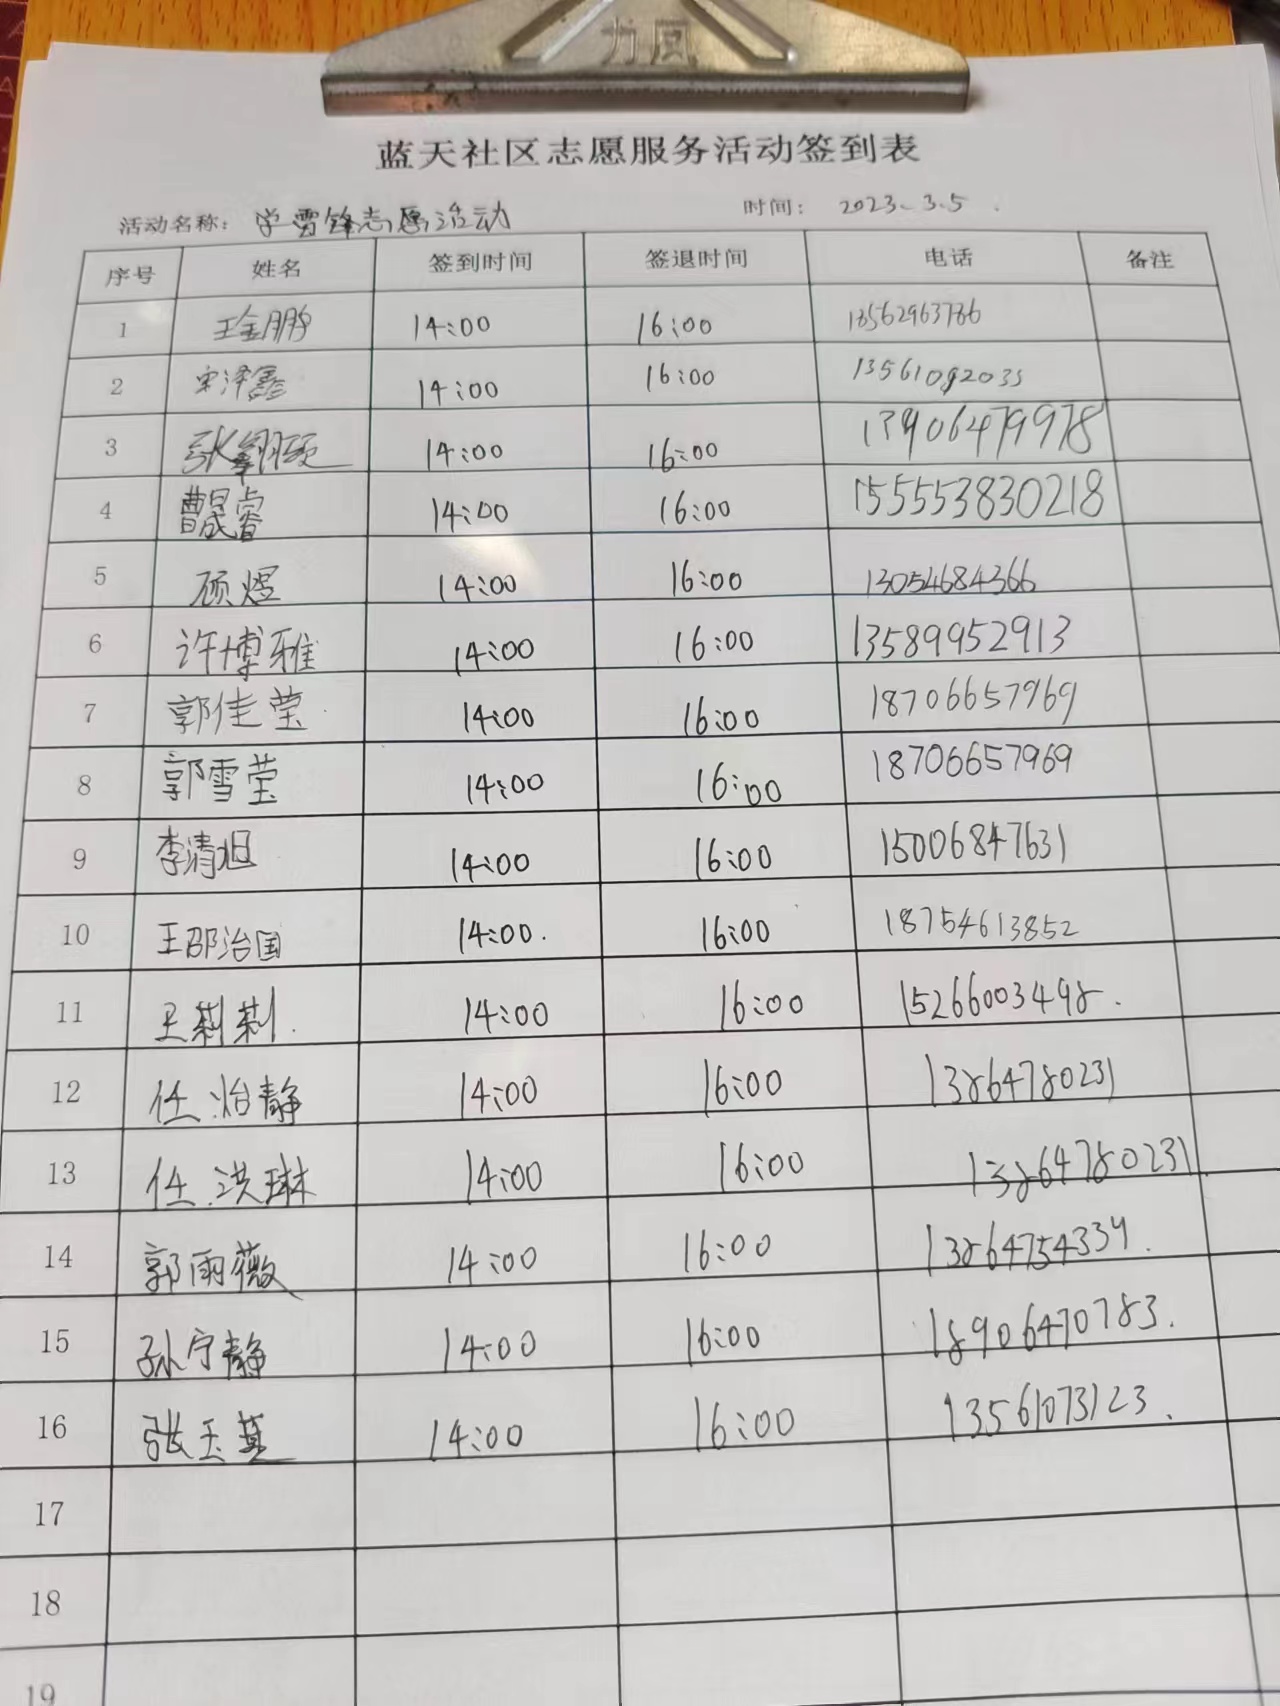 力风
蓝天社区志愿服务活动签到表
活动名称: 学雷锋志愿活动 时间: 2023.3.5.
序号 姓名 签到时间 签退时间 电话 备注
1 王金鹏 14:00 16:00 18562963786
2 宋泽鑫 14:00 16:00 13561092035
3 张 14:00 16:00 13906479978
4 曹晟睿 14:00 16:00 155553830218
5 顾煜 14:00 16:00 13054684366
6 许博雅 14:00 16:00 13589952913
7 郭佳莹 14:00 16:00 18706657969
8 郭雪莹 14:00 16:00 18706657969
9 李清旭 14:00 16:00 15006847631
10 王邵治国 14:00. 16:00 18754613852
11 王莉莉. 14:00 16:00 15266003498.
12 任怡静 14:00 16:00 13864780231
13 任洪琳 14:00 16:00 13864780231
14 郭雨薇 14:00 16:00 13864754339.
15 孙宁静 14:00 16:00 18906470783.
16 张玉 14:00 16:00 13561073123.
17
18
19